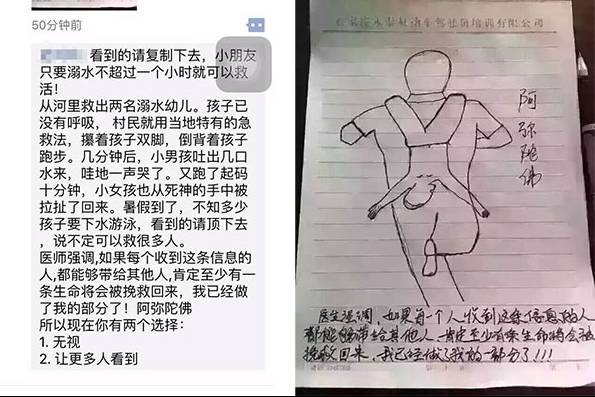 50分钟前
看到的请复制下去，小朋友
只要溺水不超过一个小时就可以救
活！
从河里救出两名溺水幼儿。孩子已
没有呼吸， 村民就用当地特有的急
救法，攥着孩子双脚，倒背着孩子
跑步。几分钟后，小男孩吐出几口
水来，哇地一声哭了。又跑了起码
十分钟，小女孩也从死神的手中被
拉扯了回来。暑假到了，不知多少
孩子要下水游泳，看到的请顶下去
，说不定可以救很多人。
医师强调,如果每个收到这条信息的
人,都能够带给其他人,肯定至少有一
条生命将会被挽救回来，我已经做
了我的部分了！阿弥陀佛
所以现在你有两个选择：
1. 无视
2. 让更多人看到
阿弥陀佛
医生强调，如果每一个人收到这条信息的人
都能够带给其他人，肯定至少有一条生命将会被
挽救回来，我已经做了我的一部分了!!!